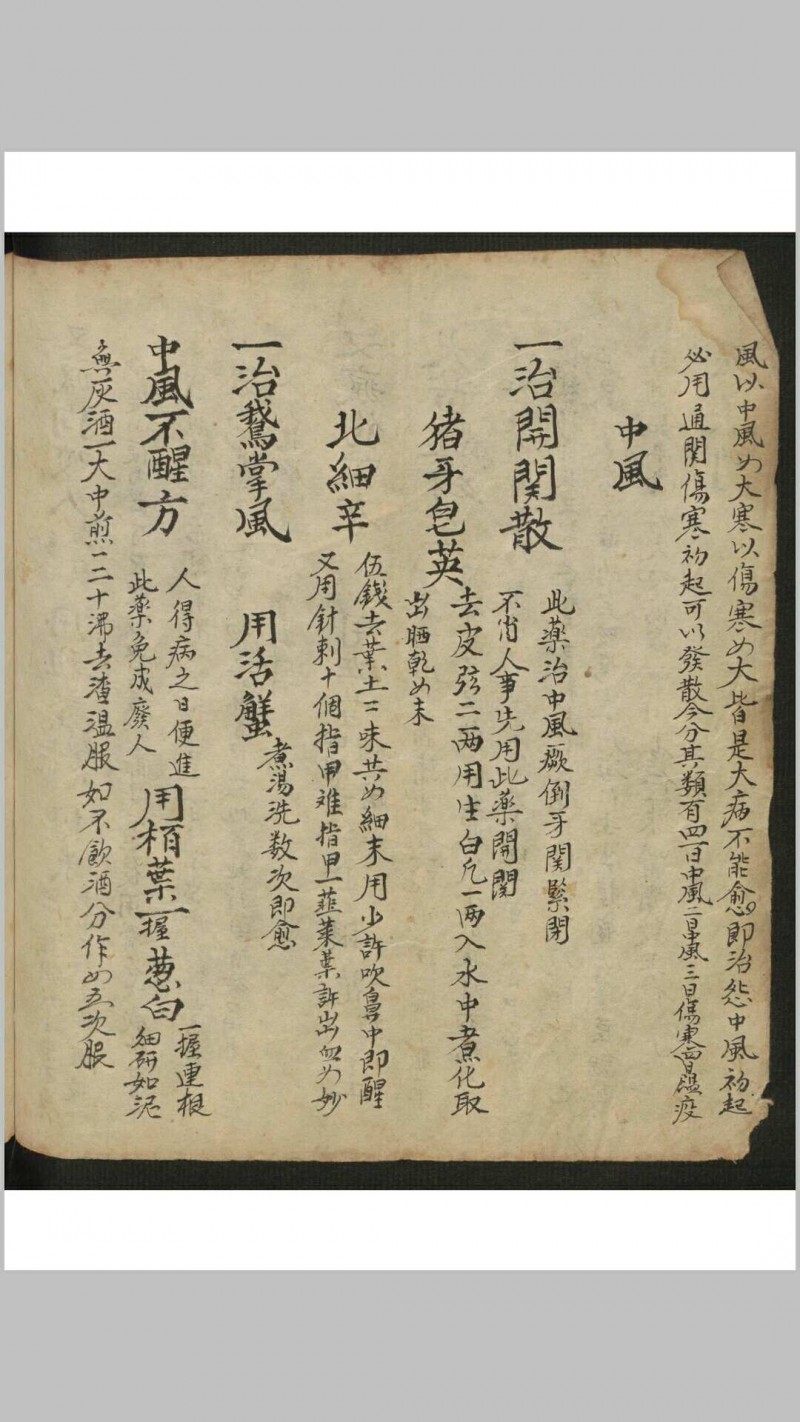 風以中風为大寒以傷寒为大皆是大病不能愈即治怨中風初起
必用通関傷寒初起可以發散今分其類有四一曰中風二曰風三曰傷寒四曰瘟疫
中風
一治開関散
此藥治中風厥倒牙関緊閉
不省人事先用此藥開関
猪牙皂英
去皮弦二两用生白凡一两入水中煮化取
出晒乾为末
北細辛
伍錢去葉土二味共为細末用少許吹鼻中即醒
又用針刺十個指甲難指甲一韮葉許出血为妙
一治鵞掌風
用活蟹
煮湯洗数次即愈
中風不醒方
人得病之日便進
此藥免成廢人
用栢葉一握
葱白
一握連根
細研如泥
無灰酒一大中煎一二十沸去渣温服如不飲酒分作四五次服